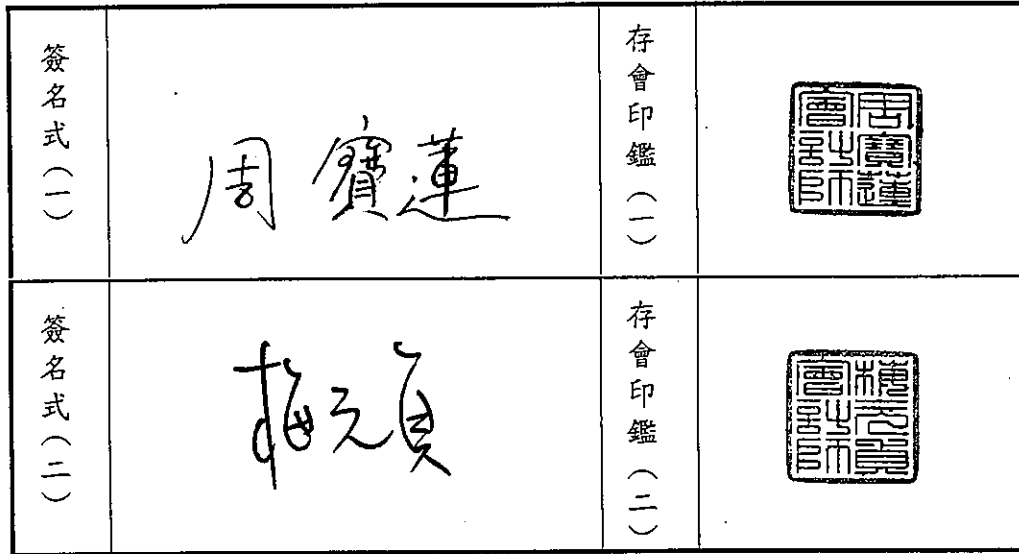 簽名式（一）
周寶蓮
存會印鑑（一）
周寶蓮會計師
簽名式（二）
梅元貞
存會印鑑（二）
梅元貞會計師